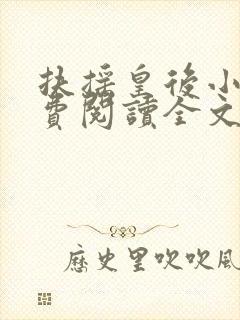 扶搖皇後小
費閱讀全文
歷史里吹吹風